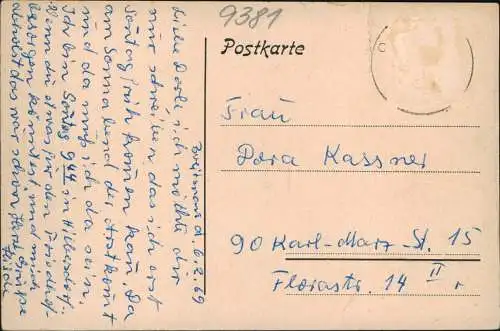 9381
Postkarte
d. 6.2.69
Liebe Dora! ich möchte dir
nur schreiben das ich erst
Sontag früh kommen kan. Da
am Sonnabend der Arzt komt
und da muß ich da sein.
Ich bin Sontag 9 44 in Hilbersdorf.
Wenn du etwas für den Friedhof
besorgen könntest und mich
abholst das wär schön. Herzl. Grüße
Frau
Dora Kassner
90 Karl-Marx-St. 15
Florastr. 14 II r